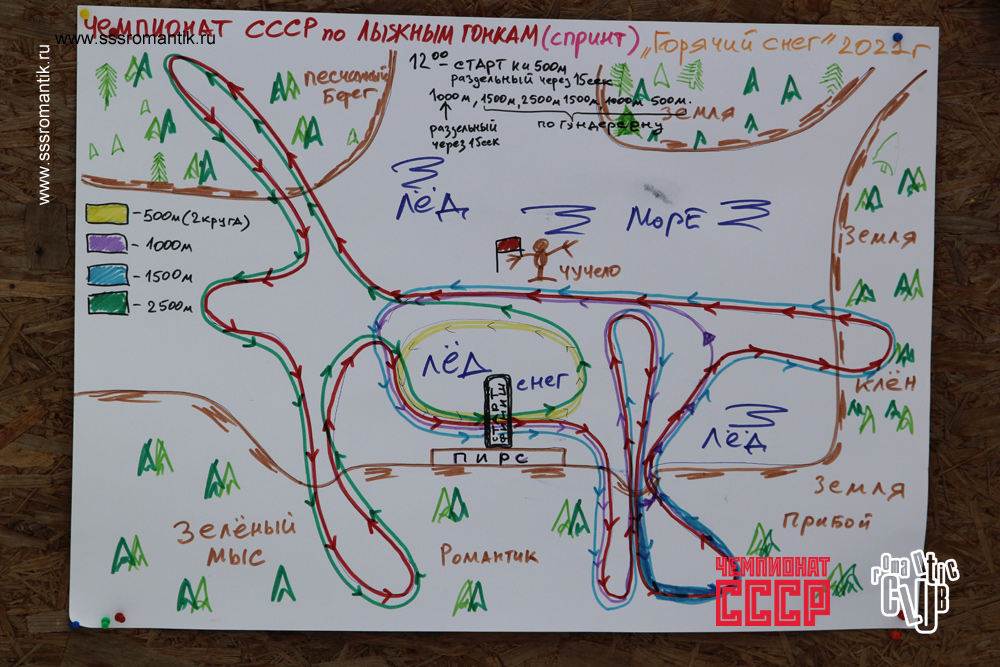 ЧЕМПИОНАТ СССР по ЛЫЖНЫМ ГОНКАМ (СПРИНТ) „ГОРЯЧИЙ СНЕГ" 2021г
www.sssromantik.ru
www.sssromantik.ru
12 00 - СТАРТ на 500м
раздельный через 15 сек
1000м, 1500м, 2500м, 1500м, 1000м 500м.
раздельный
через 15 сек
по ГУНДЕРСЕНУ
ПЕСЧАНЫЙ
БЕРЕГ
ЗЕМЛЯ
ЛЁД
МОРЕ
ЗЕМЛЯ
- 500м (2 КРУГА)
- 1000м
- 1500м
- 2500м
ЧУЧЕЛО
ЛЁД
СНЕГ
КЛЁН
ЛЁД
ПИРС
ЗЕМЛЯ
ПРИБОЙ
ЗЕЛЁНЫЙ
МЫС
РОМАНТИК
ЧЕМПИОНАТ
СССР
romantic
CLUB